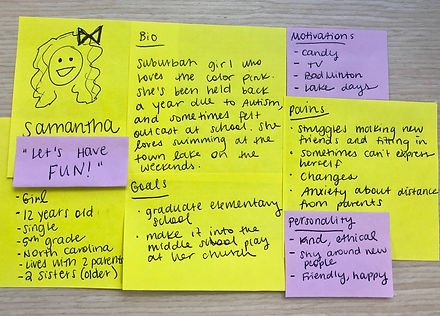 Samantha
"Let's Have
FUN!"
- Girl
- 12 years old
- Single
- 5th grade
- North Carolina
- Lives with 2 parents
- 2 sisters (older)
Bio
Suburban girl who
loves the color pink.
She's been held back
a year due to Autism,
and sometimes felt
outcast at school. She
loves swimming at the
town lake on the
weekends.
Goals
• graduate elementary
school
• make it into the
middle school play
at her church
Motivations
- candy
- TV
- Badminton
- Lake days
Pains
• struggles making new
friends and fitting in
• sometimes can't express
herself
• Changes
• Anxiety about distance
from parents
Personality
- Kind, ethical
- Shy around new
people
- Friendly, happy